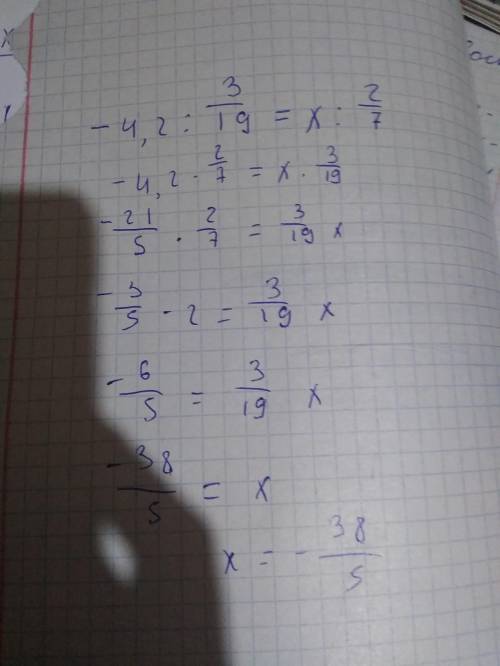 -4,2 : 3/19 = x : 2/7
-4,2 · 2/7 = x · 3/19
-21/5 · 2/7 = 3/19 x
-3/5 · 2 = 3/19 x
-6/5 = 3/19 x
-38/5 = x
x = -38/5